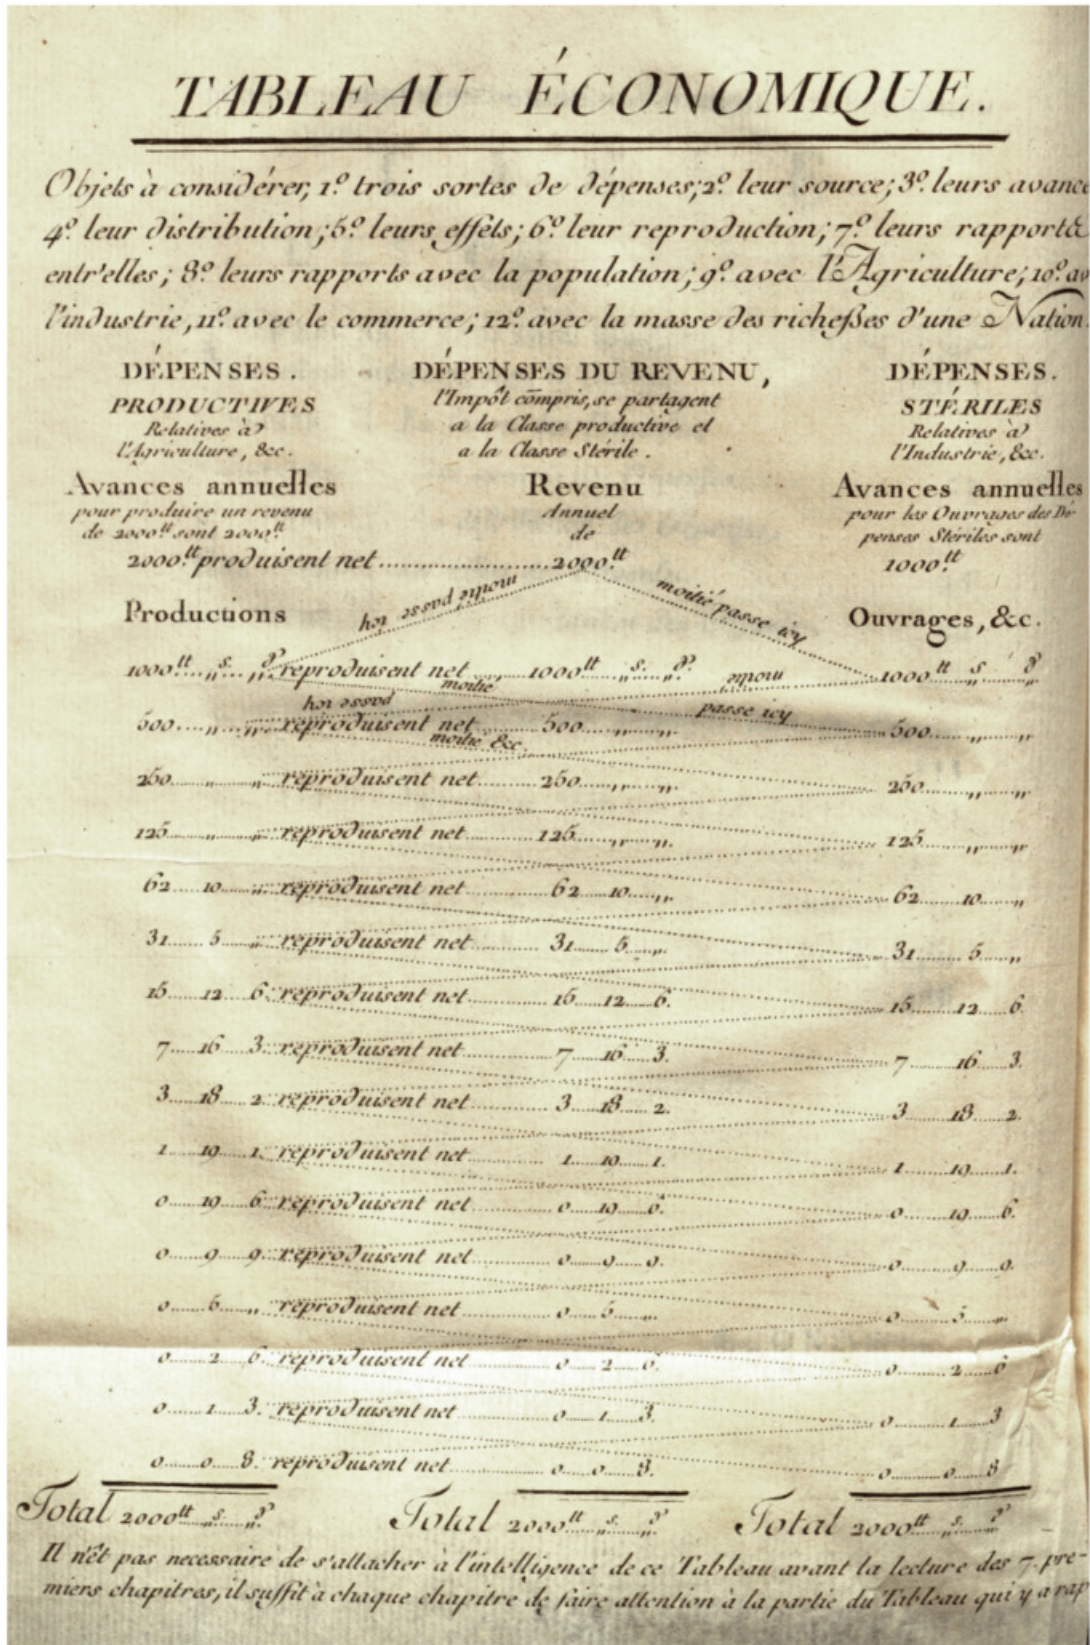 TABLEAU ÉCONOMIQUE.
Objets à considérer, 1.° trois sortes de dépenses; 2.° leur source; 3.° leurs avance
4.° leur distribution; 5.° leurs effèts; 6.° leur reproduction; 7.° leurs rapports
entr'elles; 8.° leurs rapports avec la population; 9.° avec l'Agriculture; 10.° av
l'industrie, 11.° avec le commerce; 12.° avec la masse des richeßes d'une Nation.
DÉPENSES.
PRODUCTIVES
Relatives à
l'Agriculture, &c.
DÉPENSES DU REVENU,
l'Impôt cōmpris, se partagent
a la Classe productive et
a la Classe Stérile.
DÉPENSES.
STÉRILES
Relatives à
l'Industrie, &c.
Avances annuelles
pour produire un revenu
de 2000.tt sont 2000.tt
2000.tt produisent net..........2000.tt
Revenu
Annuel
de
Avances annuelles
pour les Ouvrages des Dé-
penses Stériles sont
1000.tt
moitié passe icy
moitié passe icy
Productions
Ouvrages, &c.
1000.tt s. d. reproduisent net 1000tt s. d. 1000tt s d
moitié
moitié
passe icy
passe icy
500 „ „ reproduisent net 500 „ „ 500 „ „
moitié &c.
250 „ „ reproduisent net 250 „ „ 250 „ „
125 „ „ reproduisent net 125 „ „ 125 „ „
62 10 „ reproduisent net 62 10 „ 62 10 „
31 5 „ reproduisent net 31 5 „ 31 5 „
15 12 6. reproduisent net 15 12 6. 15 12 6.
7 16 3. reproduisent net 7 16 3. 7 16 3.
3 18 2. reproduisent net 3 18 2. 3 18 2.
1 19 1. reproduisent net 1 19 1. 1 19 1.
0 19 6. reproduisent net 0 19 6. 0 19 6.
0 9 9. reproduisent net 0 9 9. 0 9 9.
0 5 „ reproduisent net 0 5 „ 0 5 „
0 2 6. reproduisent net 0 2 6. 0 2 6
0 1 3. reproduisent net 0 1 3. 0 1 3
0 0 8. reproduisent net 0 0 8. 0 0 8
Total 2000tt s. d. Total 2000tt s. d. Total 2000tt s. d
Il n'êt pas necessaire de s'attacher à l'intelligence de ce Tableau avant la lecture des 7. pre-
miers chapitres, il suffit à chaque chapitre de faire attention à la partie du Tableau qui y a rap